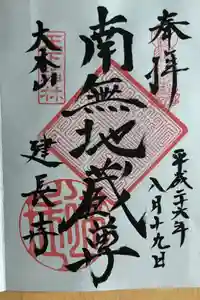 奉拝
平成二十六年
八月十九日
南無地蔵尊
大本山
建長寺